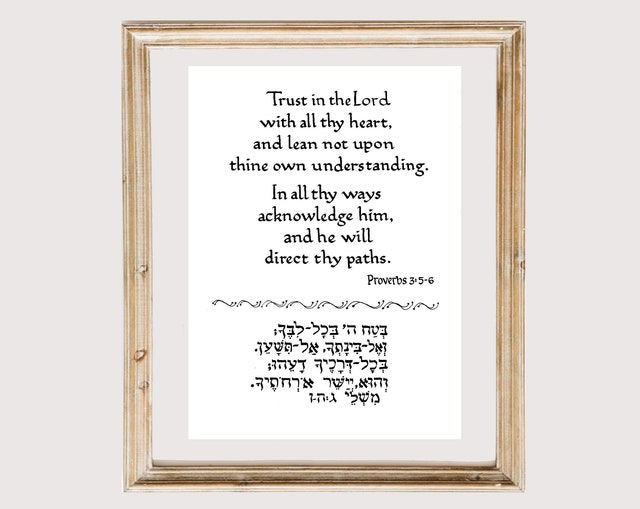 Trust in the Lord
with all thy heart,
and lean not upon
thine own understanding.
In all thy ways
acknowledge him,
and he will
direct thy paths.
Proverbs 3:5-6
בְּטַח ה׳ בְּכָל-לִבֶּךָ;
וְאֶל-בִּינָתְךָ, אַל-תִּשָּׁעֵן.
בְּכָל-דְּרָכֶיךָ דָעֵהוּ;
וְהוּא, יְיַשֵּׁר אֹרְחֹתֶיךָ.
מִשְׁלֵי ג:ה-ו